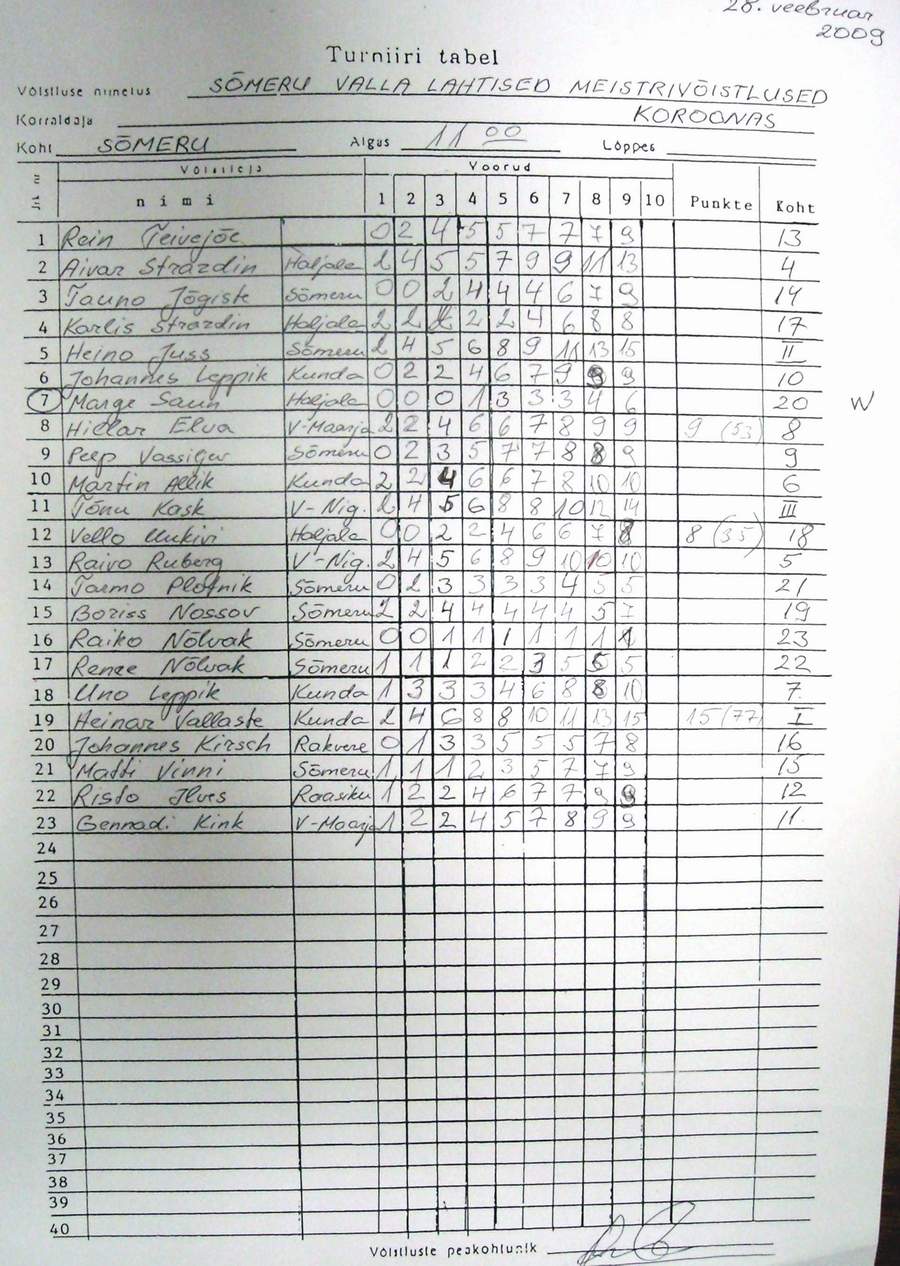 28. veebruar
2009
Turniiri tabel
Võistluse nimetus SÕMERU VALLA LAHTISED MEISTRIVÕISTLUSED
Korraldaja KOROONAS
Koht SÕMERU Algus 11 00 Lõppes
Võistleja Voorud
nimi 1 2 3 4 5 6 7 8 9 10 Punkte Koht
1 Rein Teivejõe 0 2 4 5 5 7 7 7 9 13
2 Aivar Strazdin Haljala 2 4 5 5 7 9 9 11 13 4
3 Tauno Jõgiste Sõmeru 0 0 2 4 4 4 6 7 9 14
4 Karlis Strazdin Haljala 2 2 2 2 2 4 6 8 8 17
5 Heino Juss Sõmeru 2 4 5 6 8 9 11 13 15 II
6 Johannes Leppik Kunda 0 2 2 4 6 7 9 9 9 10
7 Marge Saun Haljala 0 0 0 1 3 3 3 4 6 20 W
8 Hillar Elva V-Maarja 2 2 4 6 6 7 8 9 9 9 (53) 8
9 Peep Vassiger Sõmeru 0 2 3 5 7 7 8 8 9 9
10 Martin Allik Kunda 2 2 4 6 6 7 8 10 10 6
11 Tõnu Kask V-Nig. 2 4 5 6 8 8 10 12 14 III
12 Vello Uukivi Haljala 0 0 2 2 4 6 6 7 8 8 (35) 18
13 Raivo Ruberg V-Nig. 2 4 5 6 8 9 10 10 10 5
14 Tarmo Plotnik Sõmeru 0 2 3 3 3 3 4 5 5 21
15 Boriss Nossov Sõmeru 2 2 4 4 4 4 4 5 7 19
16 Raiko Nõlvak Sõmeru 0 0 1 1 1 1 1 1 1 23
17 Renee Nõlvak Sõmeru 1 1 1 2 2 3 5 5 5 22
18 Uno Leppik Kunda 1 3 3 3 4 6 8 8 10 7
19 Heinar Vallaste Kunda 2 4 6 8 8 10 11 13 15 15 (77) I
20 Johannes Kirsch Rakvere 0 1 3 3 5 5 5 7 8 16
21 Matti Vinni Sõmeru 1 1 1 2 3 5 7 7 9 15
22 Risto Ilves Raasiku 1 2 2 4 6 7 7 9 9 12
23 Gennadi Kink V-Maarja 1 2 2 4 5 7 8 9 9 11
24
25
26
27
28
29
30
31
32
33
34
35
36
37
38
39
40
Võistluste peakohtunik